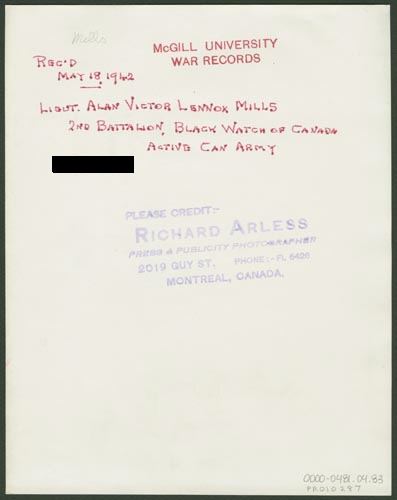 Mills
McGILL UNIVERSITY
WAR RECORDS
REC'D
MAY 18, 1942
LIEUT. ALAN VICTOR LENNOX MILLS
2ND BATTALION, BLACK WATCH OF CANADA
ACTIVE CAN ARMY
PLEASE CREDIT:-
RICHARD ARLESS
PRESS & PUBLICITY PHOTOGRAPHER
2019 GUY ST. PHONE:- FI. 6426
MONTREAL, CANADA.
0000-0481.04.83
PR010287